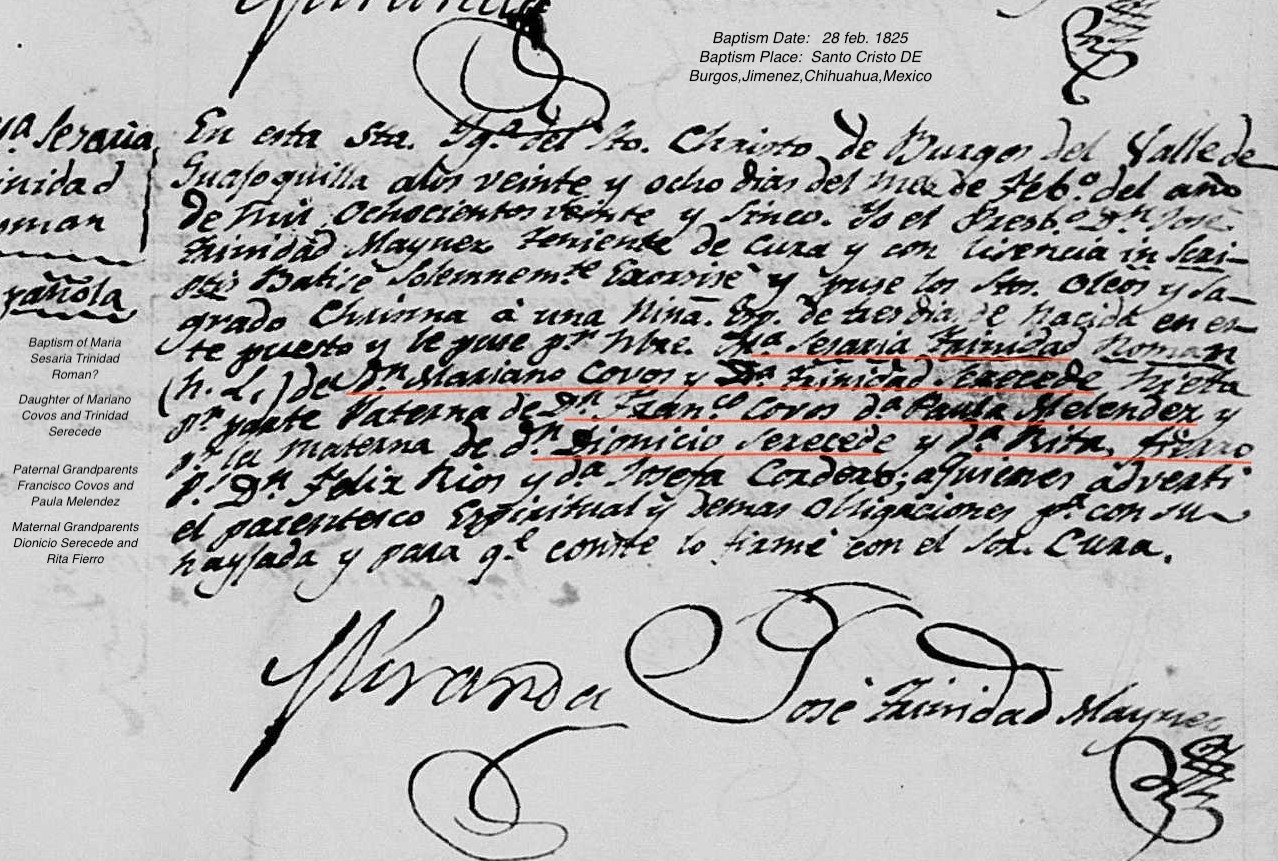 Miranda
Baptism Date: 28 feb. 1825
Baptism Place: Santo Cristo DE
Burgos,Jimenez,Chihuahua,Mexico
Sesaria
inidad
oman
española
Baptism of Maria
Sesaria Trinidad
Roman?
Daughter of Mariano
Covos and Trinidad
Serecede
Paternal Grandparents
Francisco Covos and
Paula Melendez
Maternal Grandparents
Dionicio Serecede and
Rita Fierro
En esta Sta. Yga. del Sto. Christo de Burgos del Valle de
Guajoquilla alos veinte y ocho dias del mes de Febo. del año
de mil ochocientos veinte y sinco. Yo el Presbo. Dn. José
Trinidad Maynez teniente de Cura y con licencia in Scri-
ptis Batisé Solemnemte. Exorsisé y puse los Stos. Oleos y Sa-
grado Chrisma á una Niña. Esp. de tres dias de Nacida en es-
te puesto y le puse pr. Nbre. Ma. Sesaria Trinidad Roman
(h. L.) de Dn. Mariano Covos y Da. Trinidad Serecede Nieta
pr. parte Paterna de Dn. Franco. Covos da. Paula Melendez y
pr. la Materna de dn. Dionicio Serecede y da. Rita, fierro
P. Dn. Felix Rios y da. Josefa Cordero; aquienes adverti
el parentesco Espiritual y demas obligaciones pa. con su
hayjada y para qe. conste lo firmé con el Sor. Cura.
Miranda José Trinidad Maynez